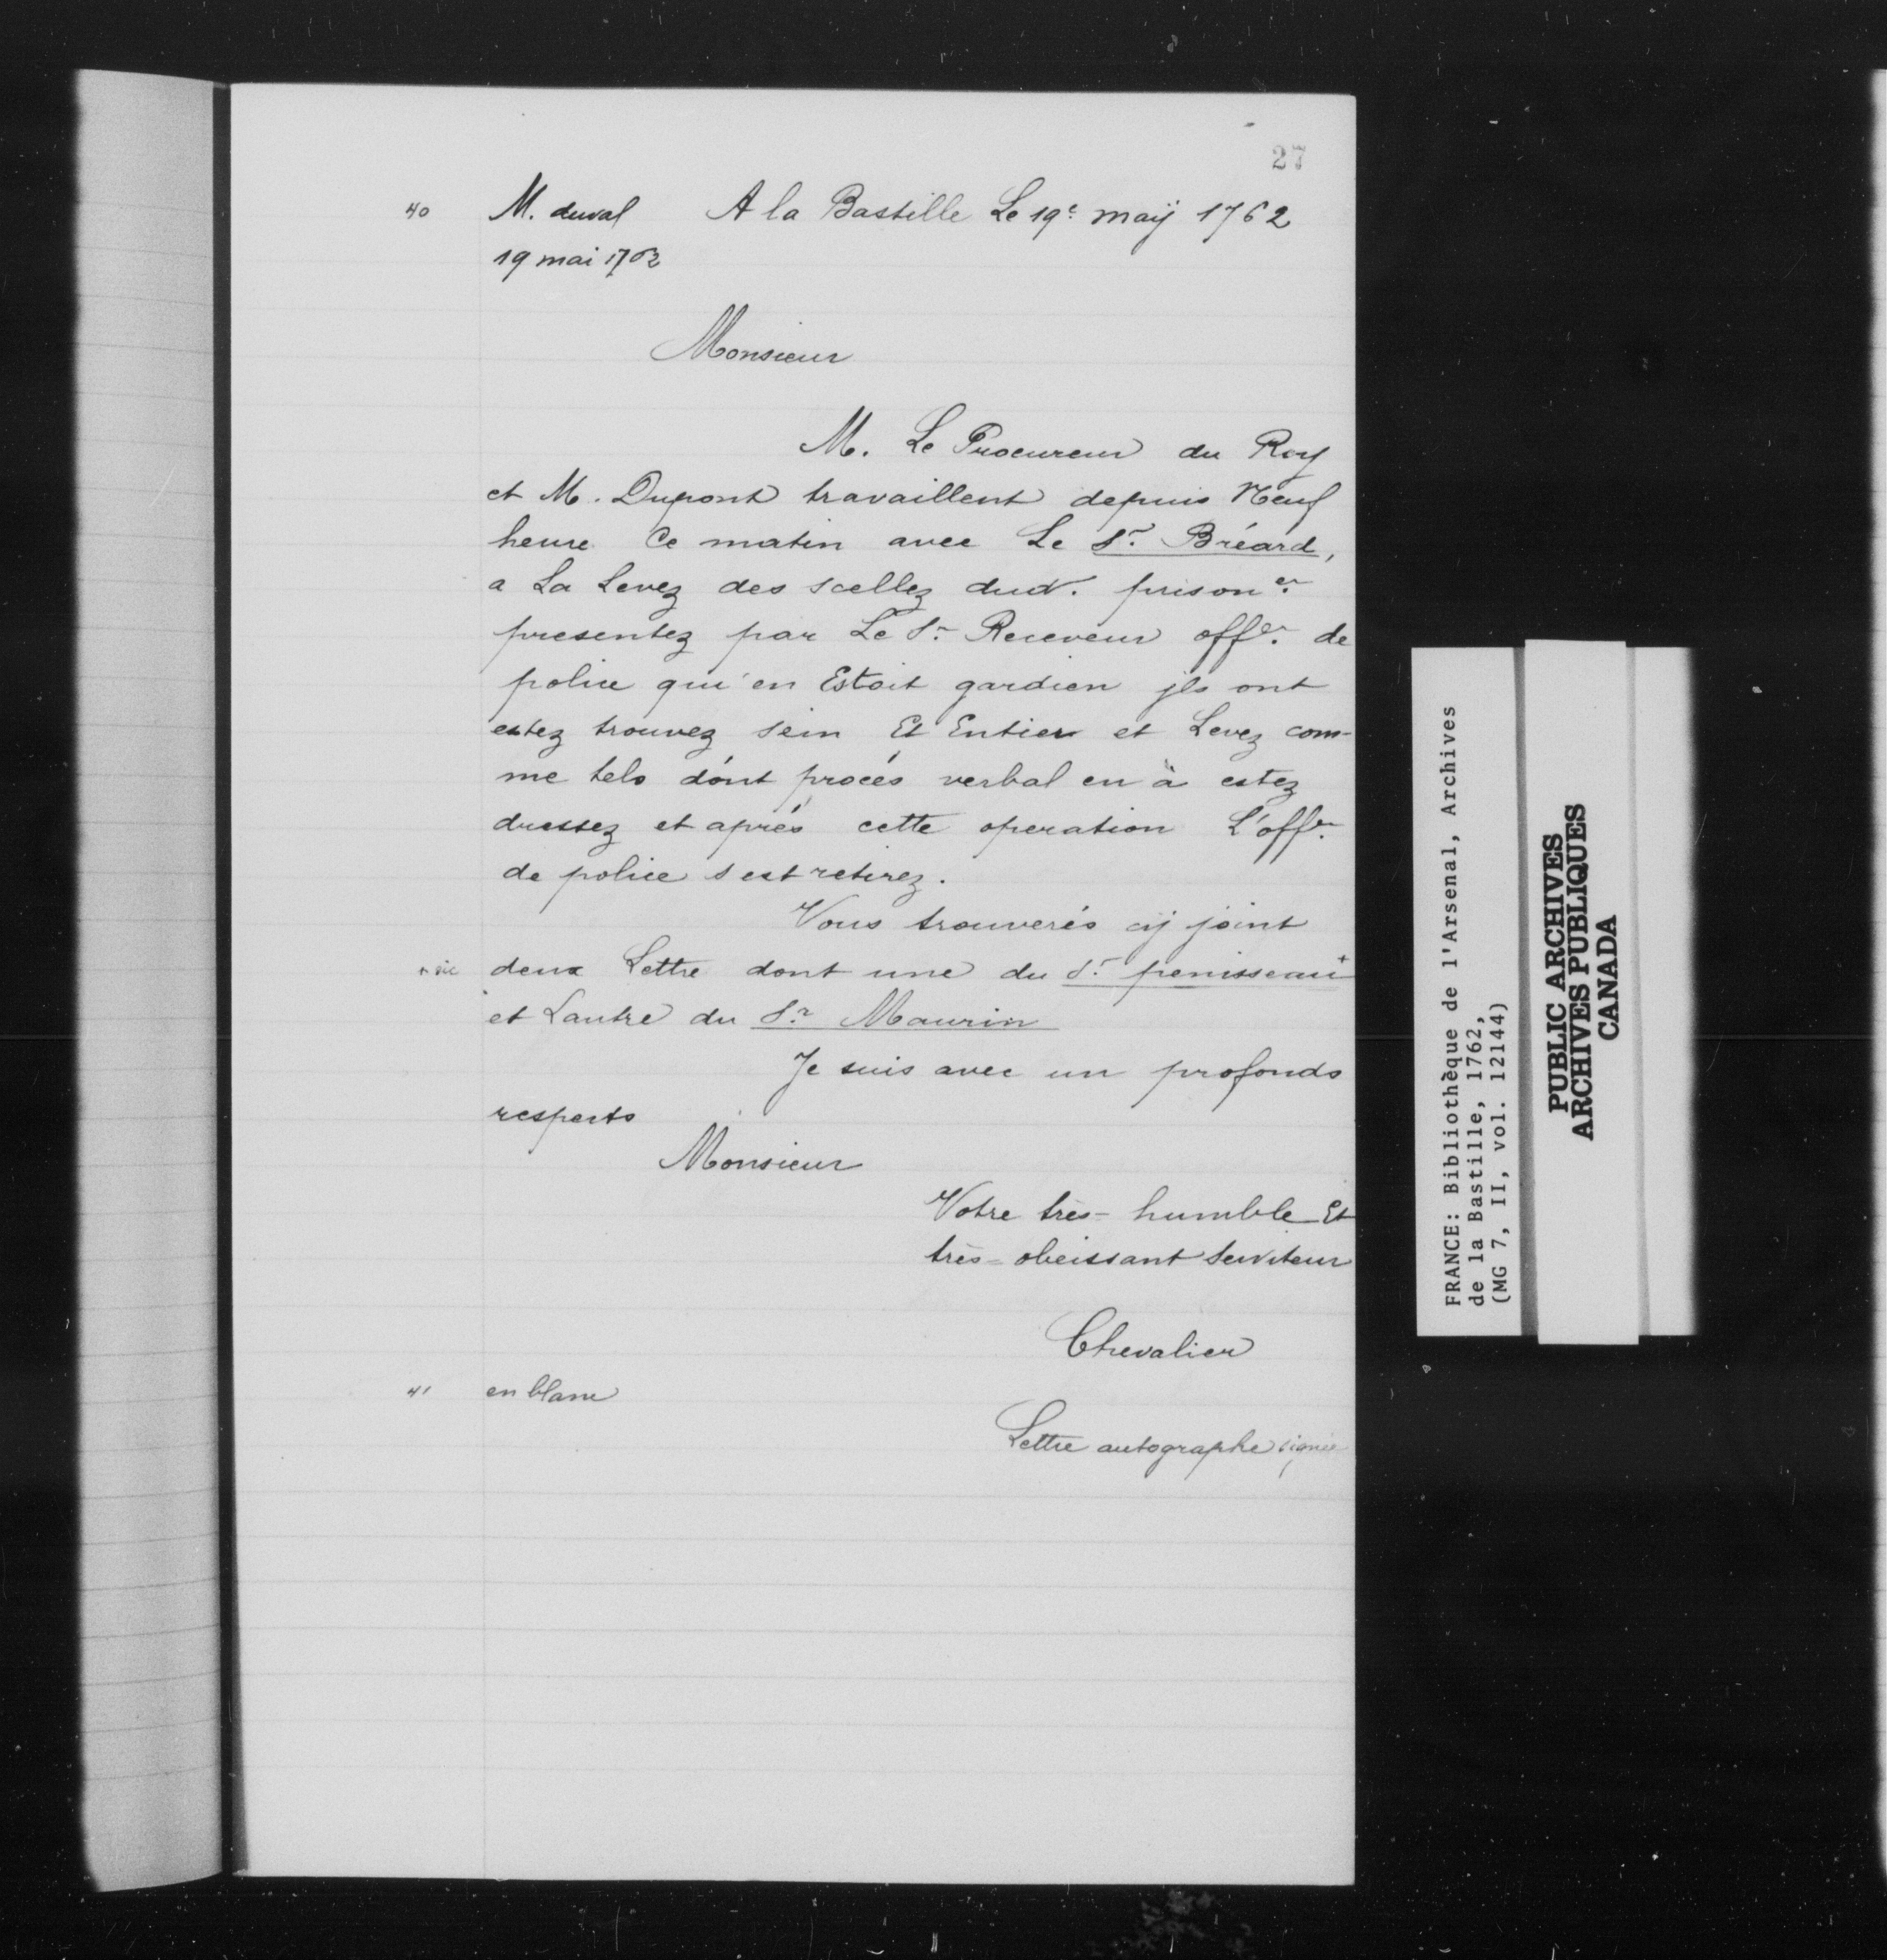 27
40 M. duval A la Bastille Le 19e. maÿ 1762
19 mai 1762
Monsieur
M. Le Procureur du Roy
et M. Dupont travaillent depuis Neuf
heure Ce matin avec Le Sr. Bréard,
a La Levez des scellez dud. prisoner.
presentez par Le Sr. Receveur offer. de
police qui en Estoit gardien jls ont
estez trouvez sein Et Entier et Levez com-
me tels dónt procés verbal en à estez
dressez et aprés cette operation L'offer.
de police s'est retirez.
Vous trouverés cÿ joint
+ sic deux Lettre dont une du Sr. penisseau+
et Lautre du Sr. Maurin
Je suis avec un profonds
respects
Monsieur
Votre très-humble Et
très-obeissant Serviteur
Chevalier
41 en blanc
Lettre autographe signée
FRANCE: Bibliothèque de l'Arsenal, Archives
de la Bastille, 1762,
(MG 7, II, vol. 12144)
PUBLIC ARCHIVES
ARCHIVES PUBLIQUES
CANADA